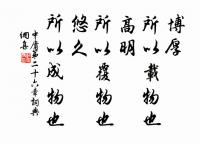 博厚
所以載物也
高明
所以覆物也
悠久
所以成物也
中庸第二十六章詞典
網集